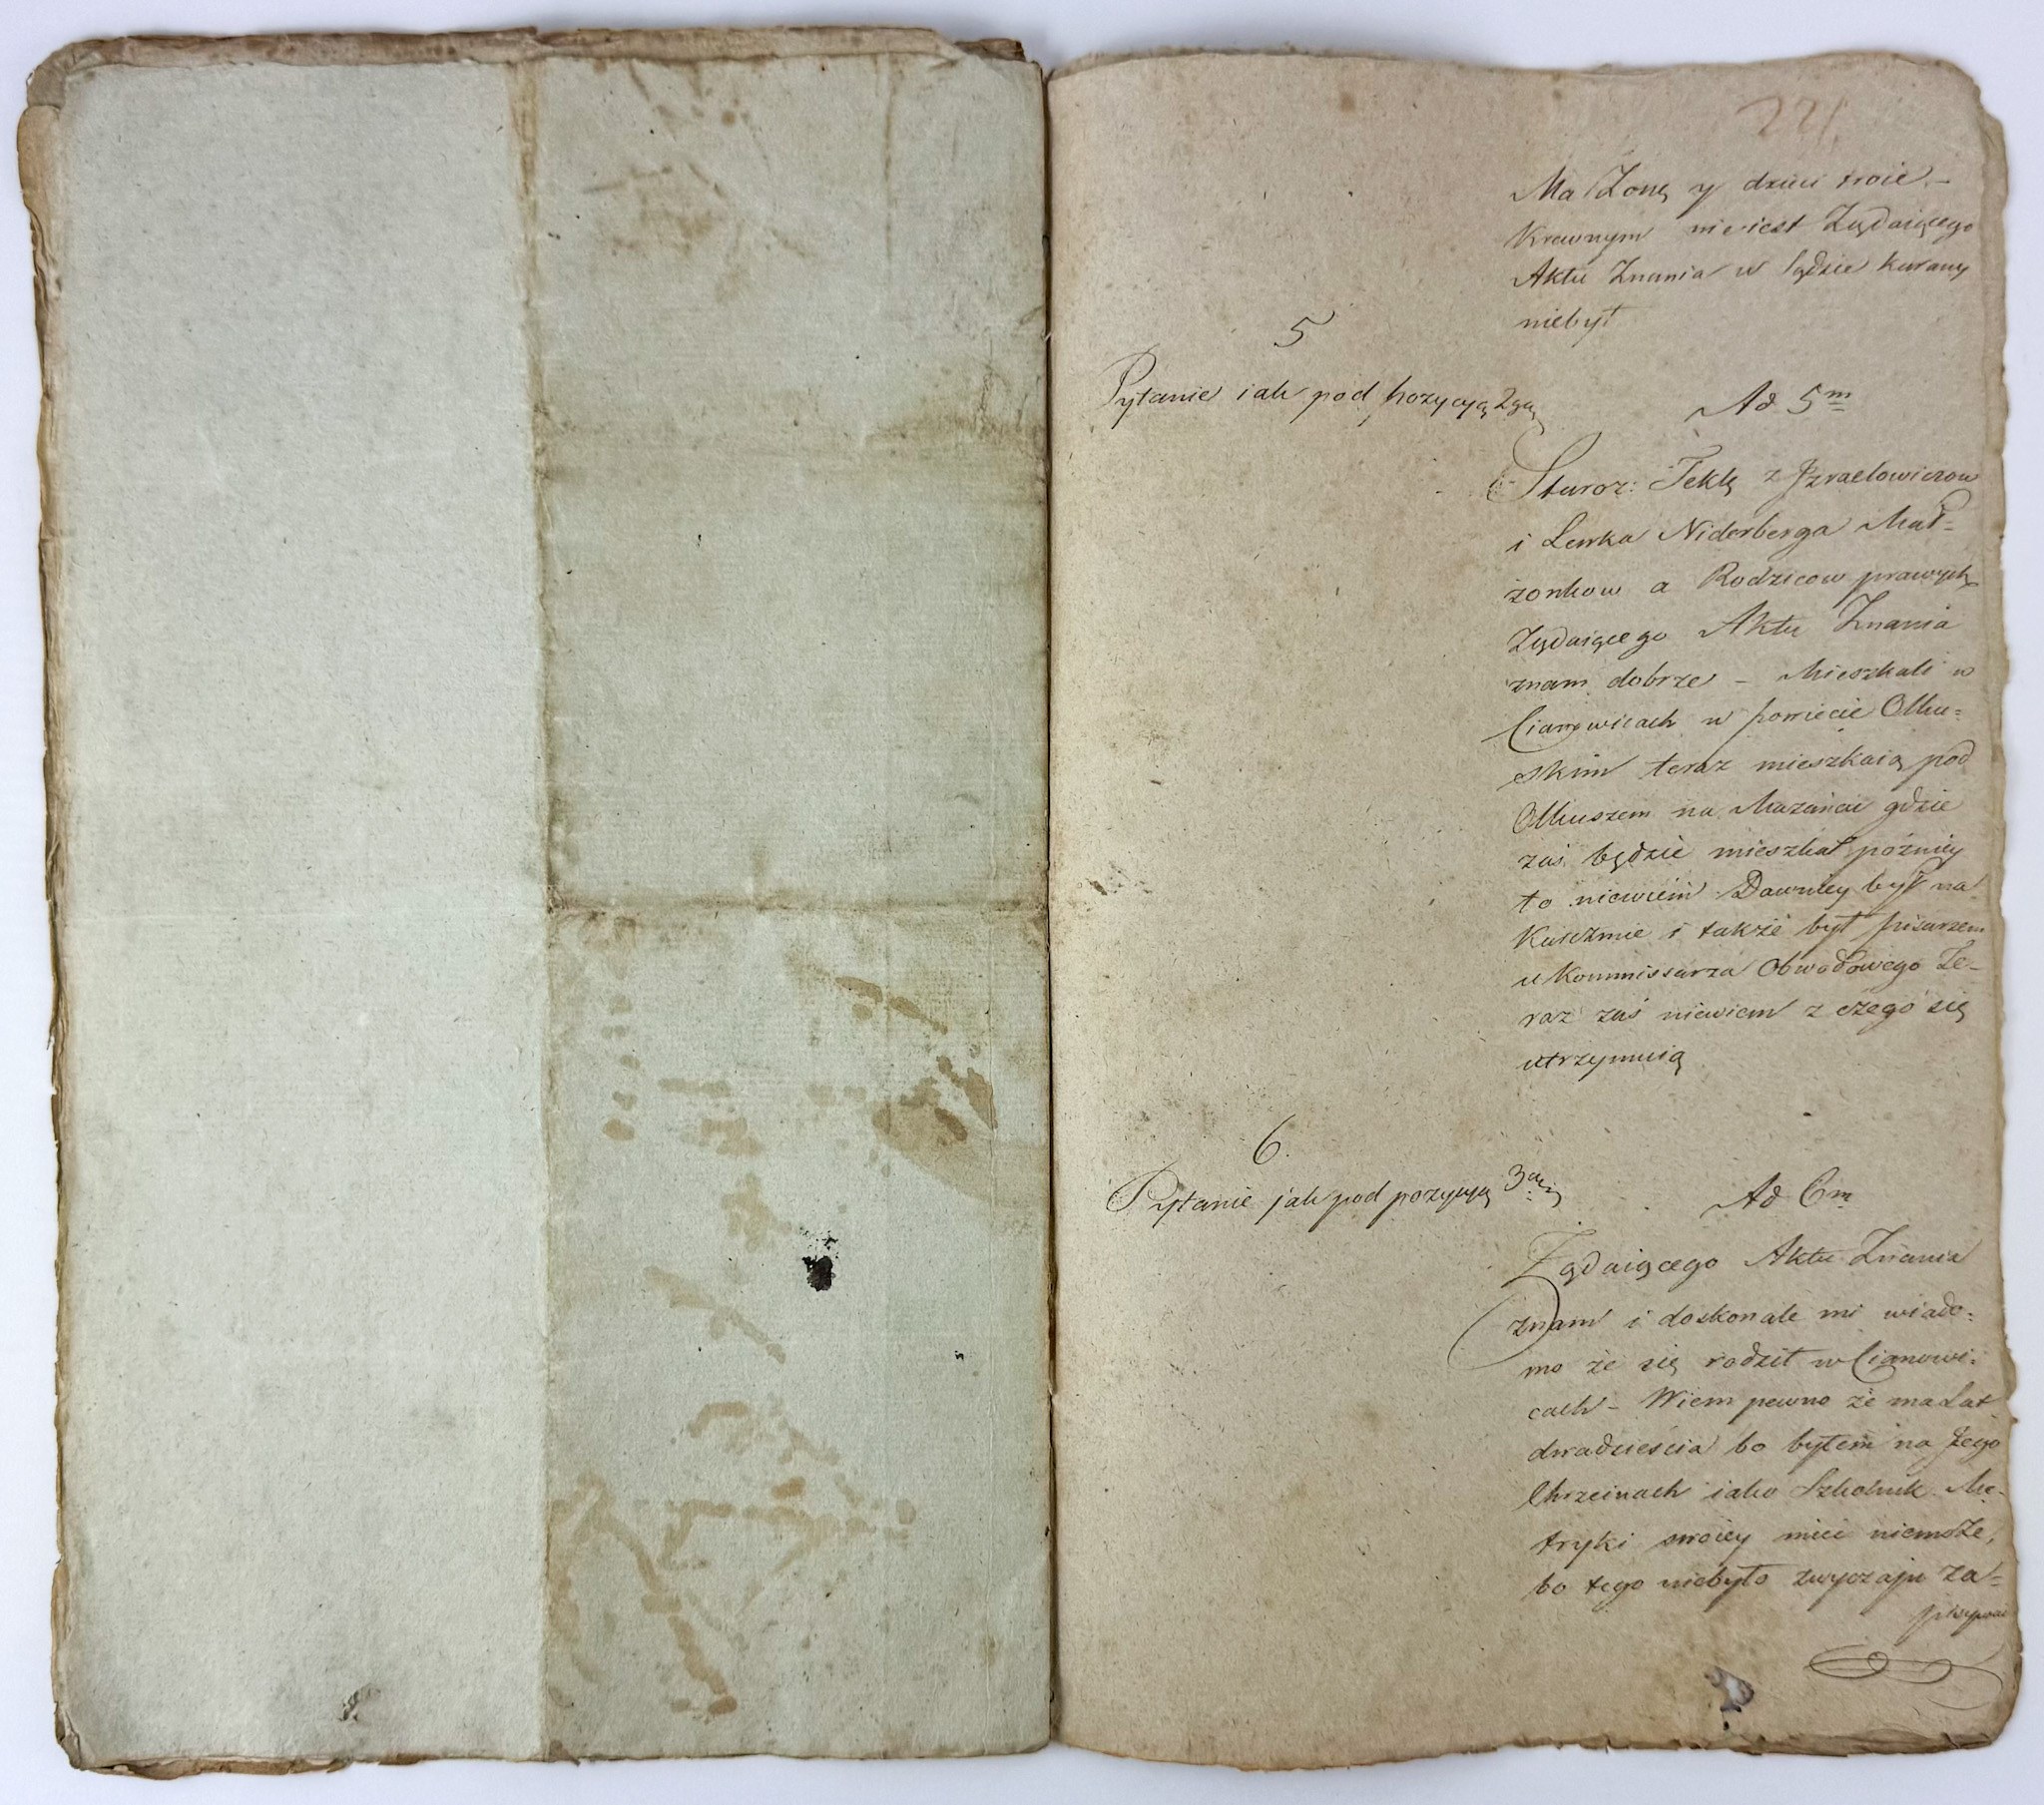 221
Ma Żonę y dzieci troie. –
Krewnym nie iest Żądaiącego
Aktu Znania w sądzie karany
niebył
5
Pytanie iak pod pozycyą 2gą
Ad 5m
Staroz: Teklę z Izraelowiczow
i Lewka Niderberga Mał=
zonkow a Rodzicow prawych
Żądaiącego Aktu Znania
znam dobrze – Mieszkali w
Cianowicach w powiecie Olku=
skim teraz mieszkaią pod
Olkuszem na gdzie
zaś będzie mieszkał pózniey
to niewiem Dawniey był na
Karczmie i także był pisarzem
u Kommissarza Obwodowego Te=
raz zaś niewiem z czego się
utrzymuią
6.
Pytanie jak pod pozycyą 3cią
Ad 6m
Żądaiącego Aktu Znania
znam i doskonale mi wiado=
mo że się rodził w Cianowi=
cach – Wiem pewno że ma Lat
dwadzieścia bo byłem na Jego
Chrzcinach iako Szkolnik. Me=
tryki swoiey mieć niemoże,
bo tego niebyło zwyczaju za=
pisywać